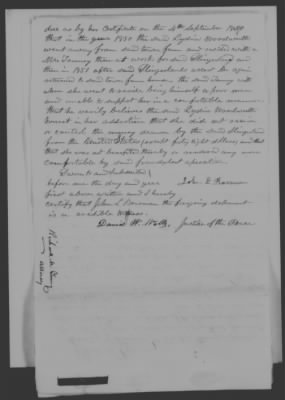 due as by her Certificate on the 4th September 1849
that in the year 1850 the said Lydia Woodworth
went away from said town and resided with a
Mrs Tenney then at work for said Slingerland and
then in 1851 after said Slingerlands went he again
returned to said town from whence the said Tenney with
whom she went to reside being himself a poor man
and unable to support her in a comfortable manner
that he verily believes the said Lydia Woodworth
correct in her assertion that she did not receive
or control the money drawn by the said Slingerland
from the United States except forty eight dollars, and that
that she was not benefited thereby or rendered any more
comfortable by said fraudulent operation
Sworn to and Subscribed
before me the day and year John L Boorman
first above written and I hereby
certify that John L Boorman the foregoing deponent
is a credible witness.
David W. Justice of the Peace
Attorney